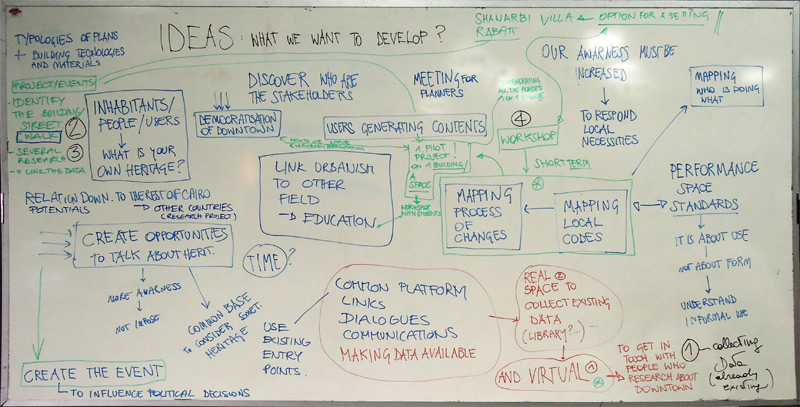 TYPOLOGIES OF PLANS
+ BUILDING TECNOLOGIES
AND MATERIALS
IDEAS: WHAT WE WANT TO DEVELOP?
SHAWARBI VILLA ← OPTION FOR A SETTING
RABATT
PROJECT/EVENTS
- IDENTIFY
THE BUILDING/
STREET
WALK
2
- SEVERAL
RESEARCH
3
→ LINK THE DATA
INHABITANTS/
PEOPLE/USERS
WHAT IS YOUR
OWN HERITAGE?
DISCOVER WHO ARE
THE STAKEHOLDERS
DEMOCRATISATION
OF DOWNTOWN
MEETING FOR
PLANNERS
USERS GENERATING CONTENTS
ALL THE FORCES
4
WORKSHOP
SHORT TERM
OUR AWARNESS MUST BE
INCREASED
TO RESPOND
LOCAL
NECESSITIES
MAPPING
WHO IS DOING
WHAT
1 PILOT
PROJECT
ON 1 BUILDING/
1
SPACE
WORKSHOP
WITH STUDENTS
LINK URBANISM
TO OTHER
FIELD
→ EDUCATION
MAPPING
PROCESS
OF
CHANGES
MAPPING
LOCAL
CODES
PERFORMANCE
SPACE
STANDARDS
IT IS ABOUT USE
NOT ABOUT FORM
UNDERSTAND
INFORMAL USE
RELATION DOWN. TO THE REST OF CAIRO
POTENTIALS
→ OTHER COUNTRIES
(RESEARCH PROJECT)
CREATE OPPORTUNITIES
TO TALK ABOUT HERIT.
TIME?
MORE AWARNESS
NOT IMPOSE
COMMON BASE
TO CONSIDER SOMET.
HERITAGE
USE
EXISTING
ENTRY
POINTS.
COMMON PLATFORM
LINKS
DIALOGUES
COMMUNICATIONS
MAKING DATA AVAILABLE
REAL 2
SPACE TO
COLLECT EXISTING
DATA
(LIBRARY?...)
AND VIRTUAL 1
TO GET IN
TOUCH WITH
PEOPLE WHO
RESEARCH ABOUT
DOWNTOWN
1 - collecting
Data
(already
existing)
CREATE THE EVENT
→ TO INFLUENCE POLITICAL DECISIONS